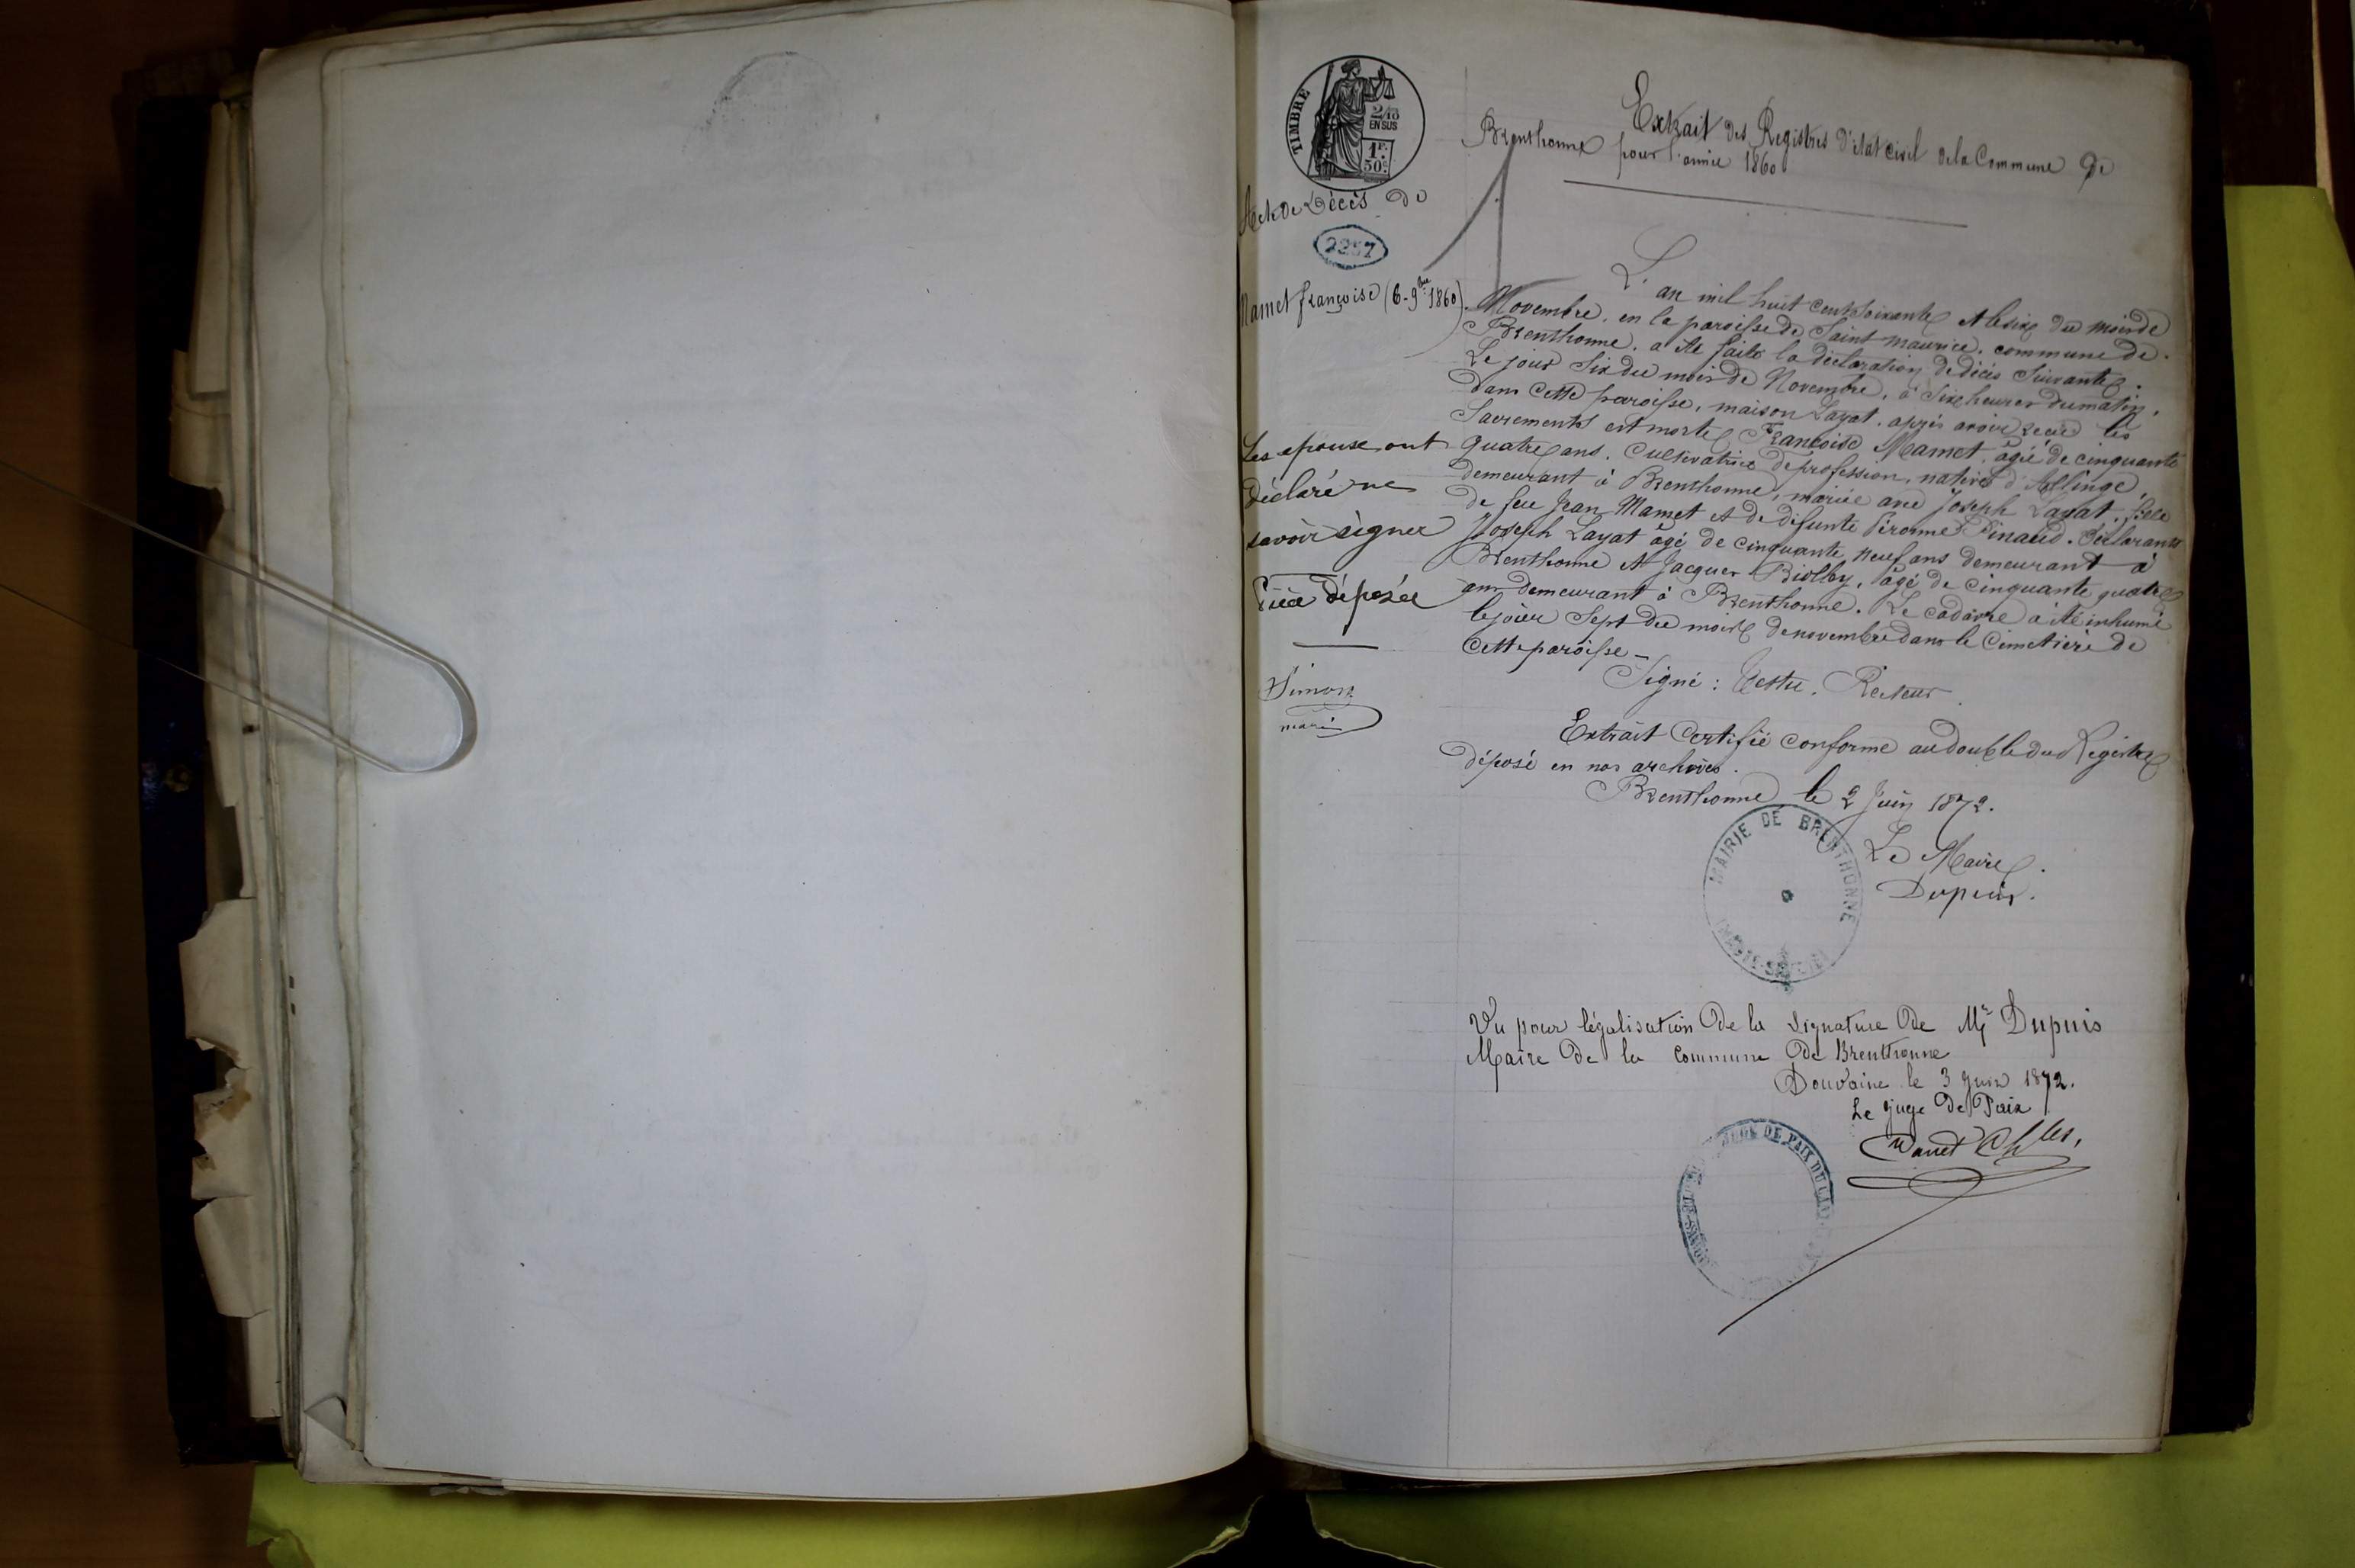 TIMBRE
2/10
EN SUS
1F.
50c.
Extrait des Registres d'état civil de la Commune de
Brenthonne pour l'année 1860
Acte de Décès de
2257
Mamet françoise (6-9bre 1860).
L'an mil huit cent soixante et le six du mois de
Novembre, en la paroisse de Saint Maurice, commune de
Brenthonne, a été faite la déclaration de décès suivante.
Le jour Six du mois de Novembre, à Six heures du matin,
dans cette paroisse, maison Layat, après avoir reçu les
Sacrements est morte Françoise Mamet, âgée de cinquante
quatre ans, Cultivatrice de profession, native d'Allinge,
demeurant à Brenthonne, mariée avec Joseph Layat, fille
de feu Jean Mamet et de défunte Péronne Pinaud. Déclarants
Joseph Layat âgé de cinquante neuf ans demeurant à
Brenthonne et Jacques Biolley, âgé de cinquante quatre
ans demeurant à Brenthonne. Le cadavre a été inhumé
le jour Sept du mois de novembre dans le Cimetière de
Cette paroisse -
Signé : Testu. Recteur
Les epouse ont
déclaré ne
savoir signer
Pièce déposée
Simon
maire
Extrait Certifié conforme au double du Registre
déposé en nos archives.
Brenthonne le 2 Juin 1872.
Le Maire.
Dupuis.
MAIRIE DE BRENTHONNE
(HAUTE-SAVOIE)
Vu pour légalisation de la signature de Mr Dupuis
Maire de la Commune de Brenthonne
Douvaine le 3 juin 1872.
Le Juge de Paix
JUGE DE PAIX DU CA